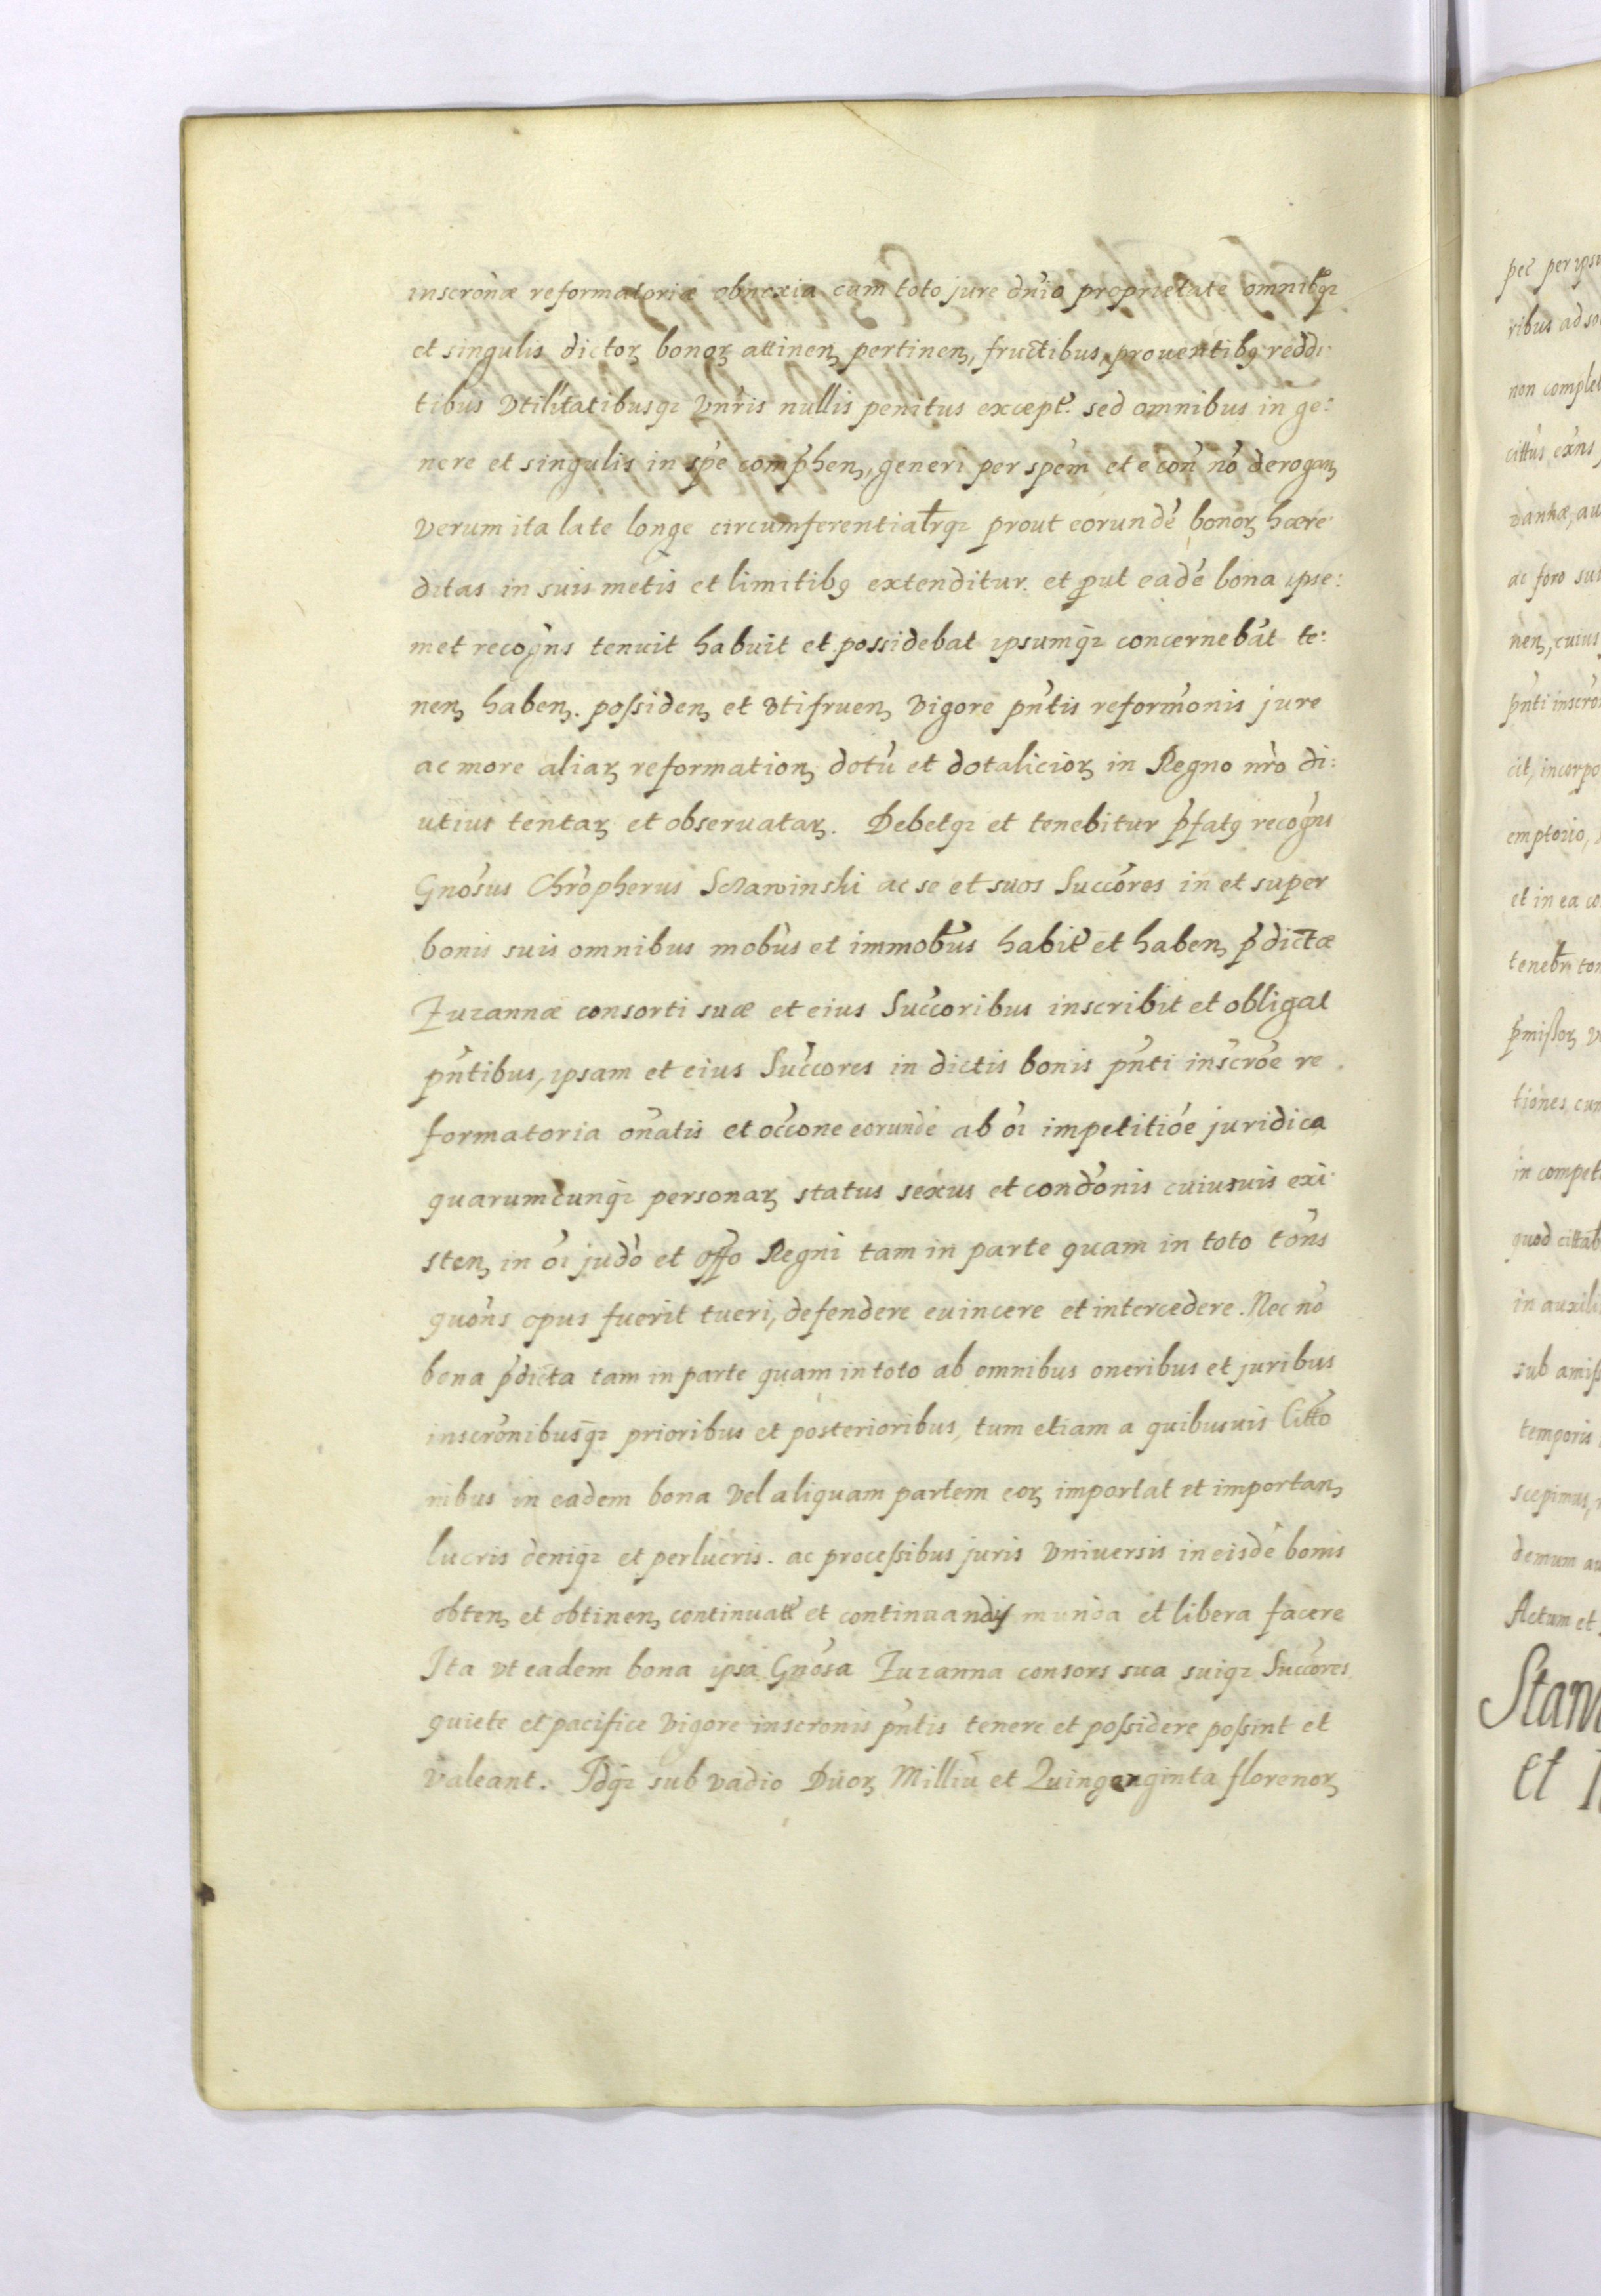 inscrõnæ reformatoriæ obnoxia cum toto jure dñio proprietate omnibqz
et singulis dictoꝝ bonoꝝ attinenꝫ pertinenꝫ, fructibus, prouentibꝫ reddi
tibus Vtilitatibusqz Vnris nullis penitus except. sed omnibus in ge:
nere et singulis in spe̛ comp̃henꝫ, generi per spe̛m et e con̛ nơ deroganꝫ
Verum ita late longe circumferentialr̃qz prout eorundẽ bonoꝝ hære
ditas in suis metis et limitibꝫ extenditur. et prout eadẽ bona ipse:
met recogn̛s tenuit habuit et possidebat ipsumqz concernebãt te:
nenꝫ habenꝫ. poſsidenꝫ et Vtifruenꝫ Vigore pñtis reformõnis jure
ac more aliaꝝ reformationꝫ dotũ et dotalicioꝝ in Regno nr̃o di:
utius tentaꝝ et obseruataꝝ. Debetqz et tenebitur p̃fatꝫ recogñs
Gnõsus Chrõpherus Sczawinski ac se et suos Succõres in et super
bonis suis omnibus mobũs et immobũs habit̃ et habenꝫ p̃dictæ
Zuzannæ consorti suæ et eius Succoribus inscribit et obligat
pñtibus, ipsam et eius Succores in dictis bonis pñti inscrõe re
formatoria oñatis et occõne eorundẽ ab oĩ impetitiõe juridica
quarumcunqz personaꝝ status sexus et condõnis cuiusuis exi
stenꝫ in oĩ judõ et off̃o Regni tam in parte quam in toto tõns
quõns opus fuerit tueri, defendere euincere et intercedere. Nec nõ
bona p̃dicta tam in parte quam in toto ab omnibus oneribus et juribus
inscrõnibusqz prioribus et posterioribus, tum etiam a quibusuis Citto
nibus in eadem bona Vel aliquam partem eoꝝ importat et importanꝫ
lucris deniqz et perlucris. ac proceſsibus juris Vniuersis in eisdẽ bonis
obtenꝫ et obtinenꝫ continuatt̃ et continuandis munda et libera facere
Ita Vt eadem bona ipsa Gnõsa Zuzanna consors sua suiqz Succores
quiete et pacifice Vigore inscronis pñtis tenere et poſsidere poſsint et
Valeant. Idqz sub vadio Duoꝝ Milliũ et Quingenginta florenoꝝ